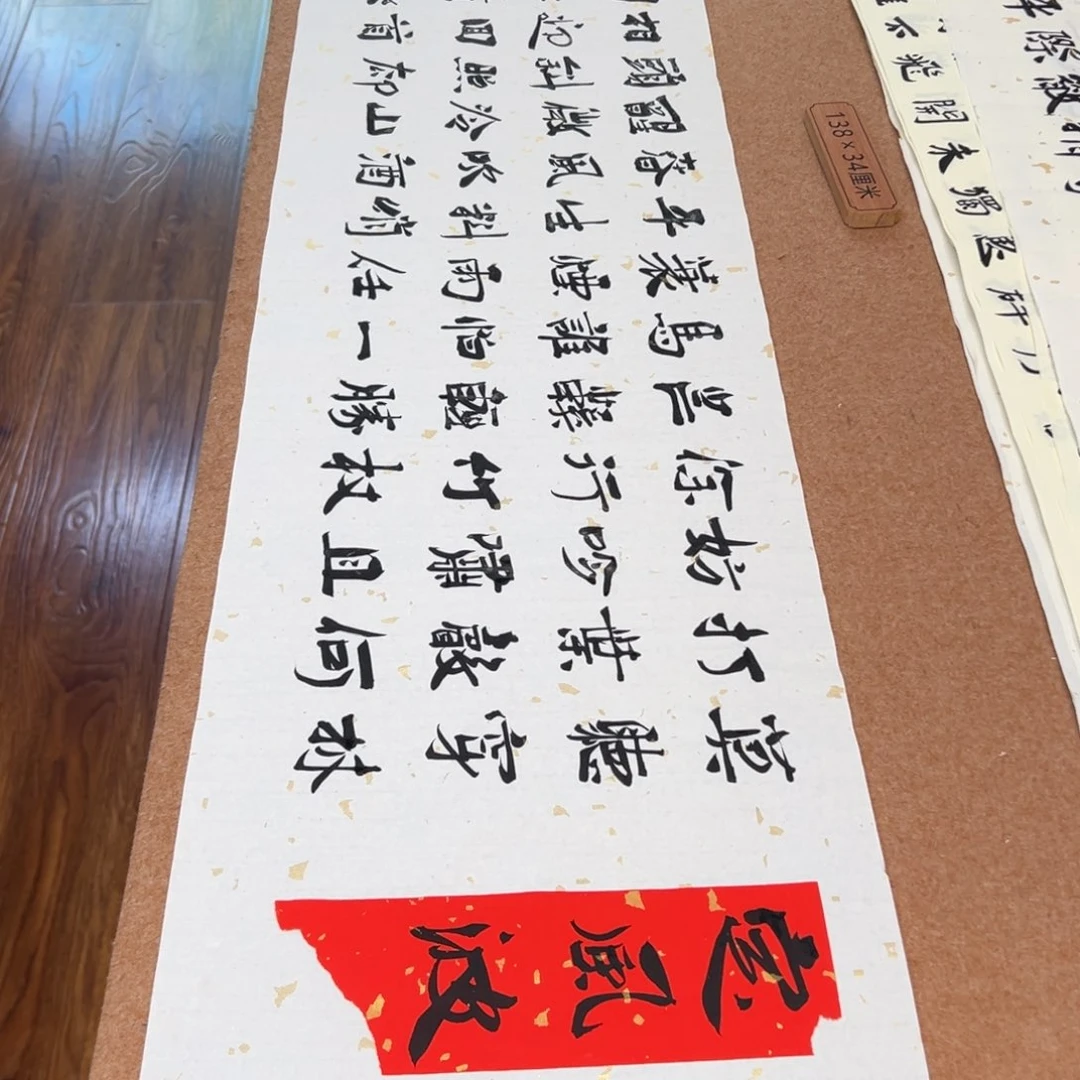 定風波
莫聽穿林
打葉聲何
妨吟嘯且
徐行竹杖
芒鞋輕勝
馬誰怕一
蓑煙雨任
平生料峭
春風吹酒
醒微冷山
頭斜照却
相迎回首
138×34厘米
不飛開未獨
際